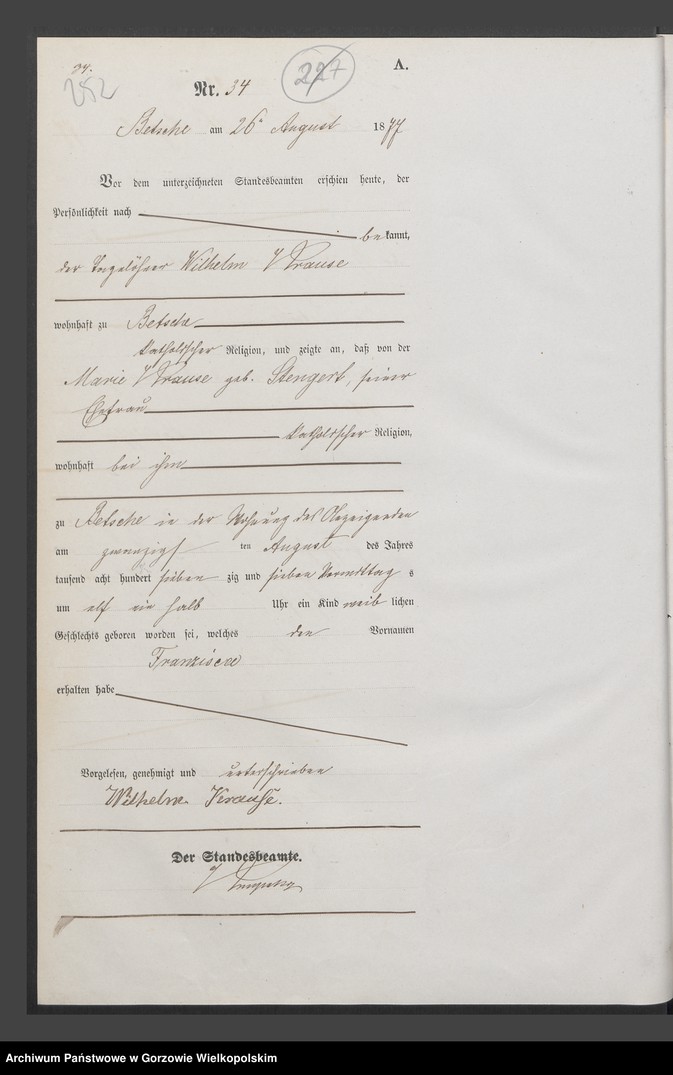 34.
252
227
A.
Nr. 34
Betsche am 26 August 1877
Vor dem unterzeichneten Standesbeamten erschien heute, der
Persönlichkeit nach
be kannt,
der Tagelöhner Wilhelm Krause
wohnhaft zu Betsche
katholischer Religion, und zeigte an, daß von der
Marie Krause geb. Stengert, seiner
Ehefrau
katholischer Religion,
wohnhaft bei ihm
zu Betsche in der Wohnung des Anzeigenden
am zwanzigsten August des Jahres
tausend acht hundert sieben zig und sieben Vormittag s
um elf ein halb Uhr ein Kind weib lichen
Geschlechts geboren worden sei, welches den Vornamen
Franzisca
erhalten habe
Vorgelesen, genehmigt und unterschrieben
Wilhelm Krause.
Der Standesbeamte.
Archiwum Państwowe w Gorzowie Wielkopolskim